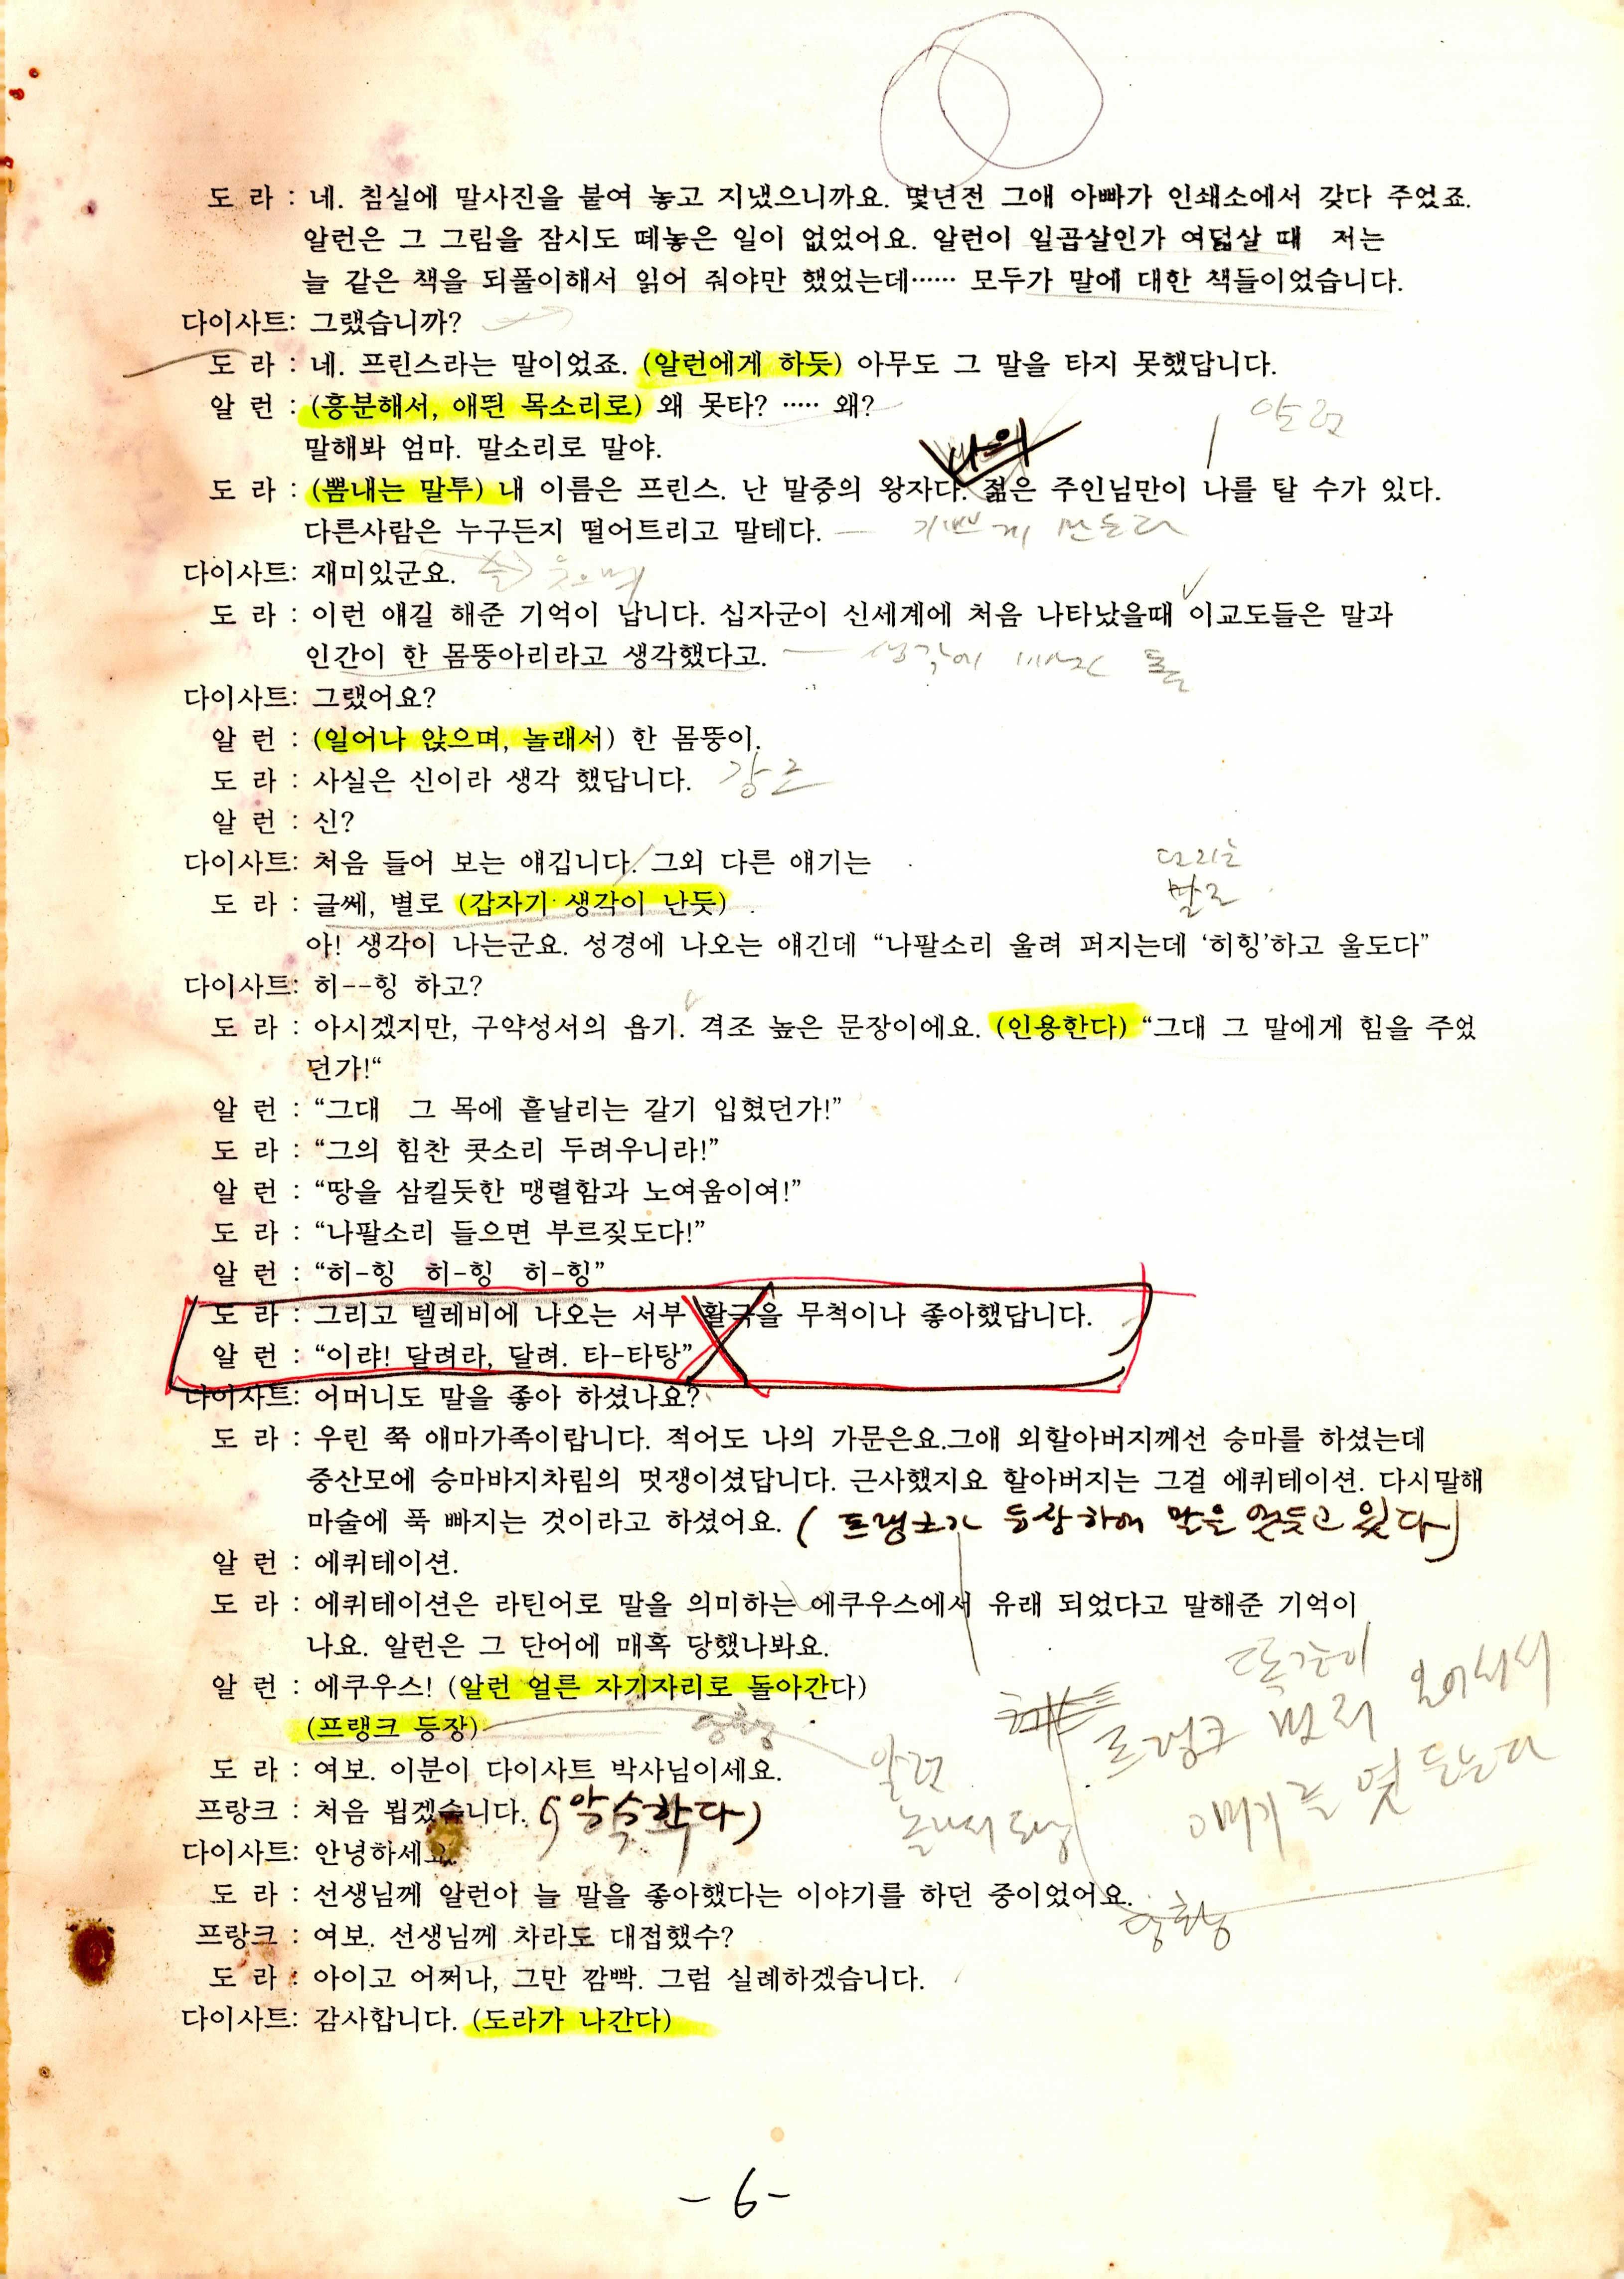 도 라 : 네. 침실에 말사진을 붙여 놓고 지냈으니까요. 몇년전 그애 아빠가 인쇄소에서 갖다 주었죠.
알런은 그 그림을 잠시도 떼놓은 일이 없었어요. 알런이 일곱살인가 여덟살 때 저는
늘 같은 책을 되풀이해서 읽어 줘야만 했었는데…… 모두가 말에 대한 책들이었습니다.
다이사트: 그랬습니까?
도 라 : 네. 프린스라는 말이었죠. (알런에게 하듯) 아무도 그 말을 타지 못했답니다.
알 런 : (흥분해서, 애띤 목소리로) 왜 못타? ····· 왜?
알런
말해봐 엄마. 말소리로 말야.
나의
도 라 : (뽐내는 말투) 내 이름은 프린스. 난 말중의 왕자다. 젊은 주인님만이 나를 탈 수가 있다.
다른사람은 누구든지 떨어트리고 말테다. 기쁘게 만든다
다이사트: 재미있군요. 웃으며
도 라 : 이런 얘길 해준 기억이 납니다. 십자군이 신세계에 처음 나타났을때 이교도들은 말과
인간이 한 몸뚱아리라고 생각했다고. 생각에 빠진 듯
다이사트: 그랬어요?
알 런 : (일어나 앉으며, 놀래서) 한 몸뚱이.
도 라 : 사실은 신이라 생각 했답니다. 강조
알 런 : 신?
다이사트: 처음 들어 보는 얘깁니다. 그외 다른 얘기는
도 라 : 글쎄, 별로 (갑자기 생각이 난듯)
아! 생각이 나는군요. 성경에 나오는 얘긴데 “나팔소리 울려 퍼지는데 ‘히힝’하고 울도다”
다이사트: 히--힝 하고?
도 라 : 아시겠지만, 구약성서의 욥기. 격조 높은 문장이에요. (인용한다) “그대 그 말에게 힘을 주었
던가!“
알 런 : “그대 그 목에 흩날리는 갈기 입혔던가!”
도 라 : “그의 힘찬 콧소리 두려우니라!”
알 런 : “땅을 삼킬듯한 맹렬함과 노여움이여!”
도 라 : “나팔소리 들으면 부르짖도다!”
알 런 : “히-힝 히-힝 히-힝”
도 라 : 그리고 텔레비에 나오는 서부 활극을 무척이나 좋아했답니다.
알 런 : “이랴! 달려라, 달려. 타-타탕”
다이사트: 어머니도 말을 좋아 하셨나요?
도 라 : 우린 쭉 애마가족이랍니다. 적어도 나의 가문은요.그애 외할아버지께선 승마를 하셨는데
중산모에 승마바지차림의 멋쟁이셨답니다. 근사했지요 할아버지는 그걸 에퀴테이션. 다시말해
마술에 푹 빠지는 것이라고 하셨어요. (프랭크가 등장하여 말을 엿듣고 있다)
알 런 : 에퀴테이션.
도 라 : 에퀴테이션은 라틴어로 말을 의미하는 에쿠우스에서 유래 되었다고 말해준 기억이
나요. 알런은 그 단어에 매혹 당했나봐요.
알 런 : 에쿠우스! (알런 얼른 자기자리로 돌아간다)
(프랭크 등장) 당황
프랭크 먼저 들어와서
얘기를 엿듣는다
도 라 : 여보. 이분이 다이사트 박사님이세요.
알런
프랑크 : 처음 뵙겠습니다. (악수한다)
다이사트: 안녕하세요.
도 라 : 선생님께 알런이 늘 말을 좋아했다는 이야기를 하던 중이었어요.
당황
프랑크 : 여보. 선생님께 차라도 대접했수?
도 라 : 아이고 어쩌나, 그만 깜빡. 그럼 실례하겠습니다.
다이사트: 감사합니다. (도라가 나간다)
- 6 -